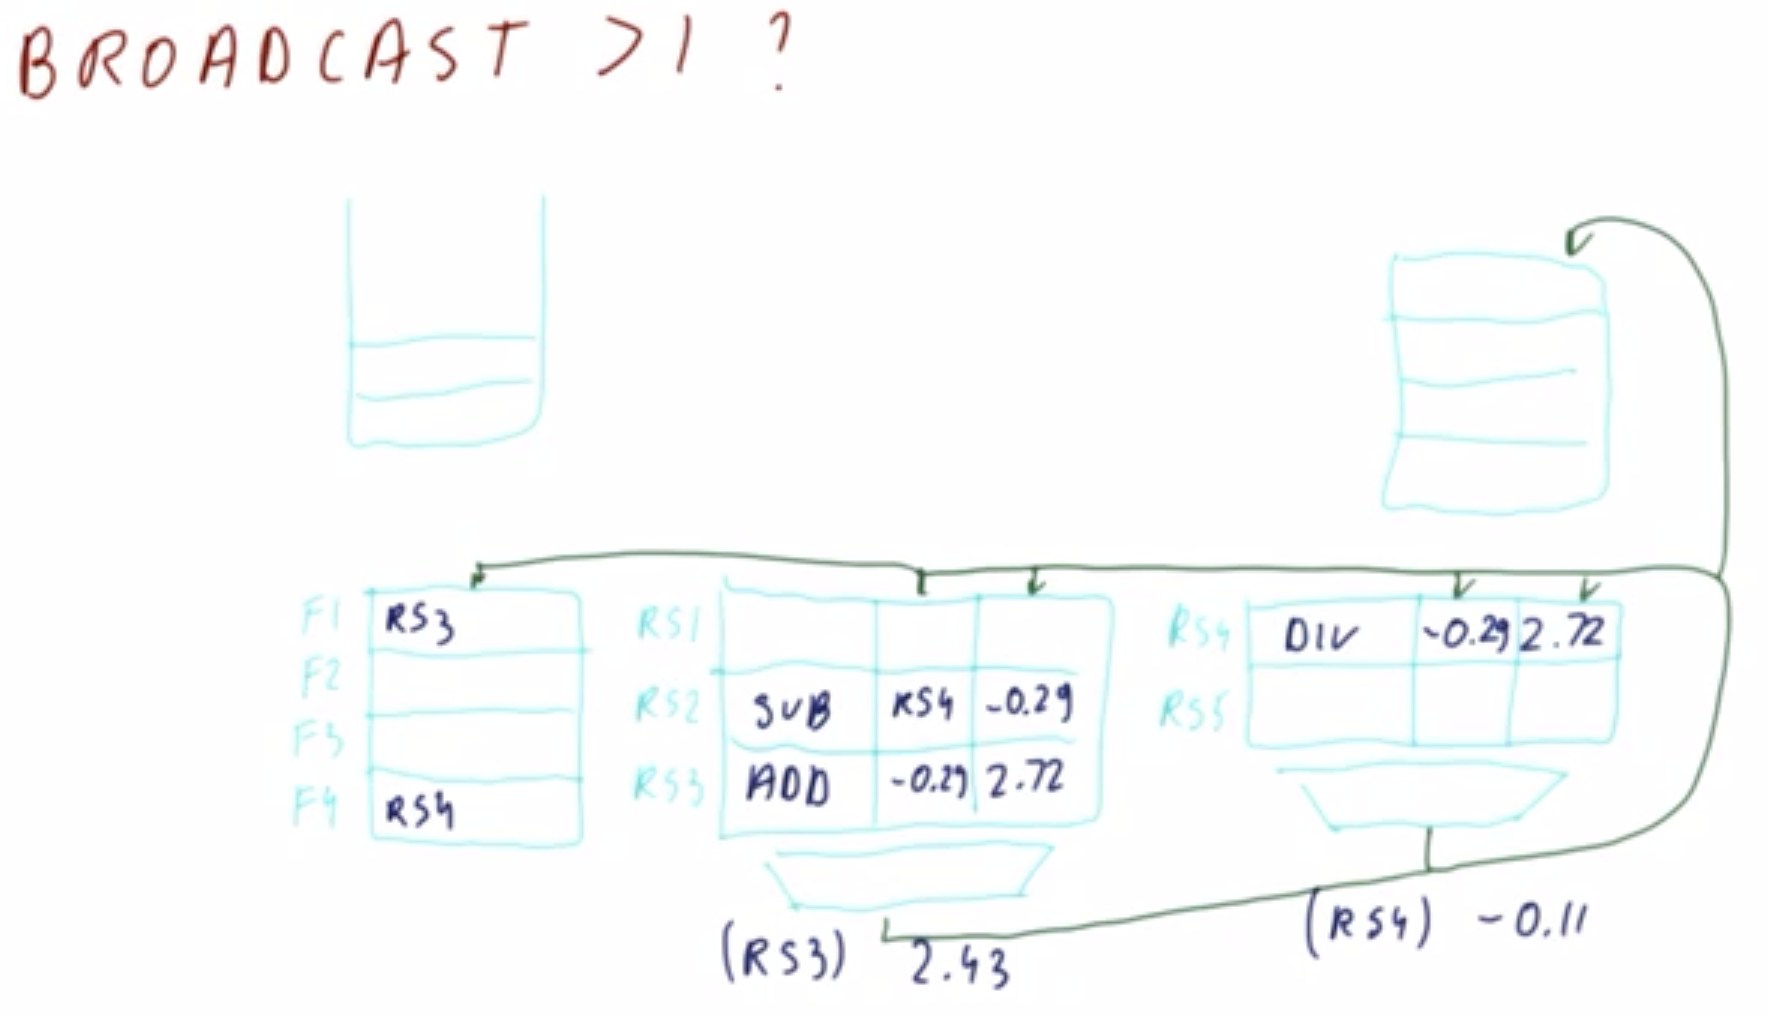 BROADCAST >1 ?
F1 RS3
F2
F3
F4 RS4
RS1
RS2 SUB RS4 -0.29
RS3 ADD -0.29 2.72
RS4 DIV -0.29 2.72
RS5
(RS3) 2.43
(RS4) -0.11